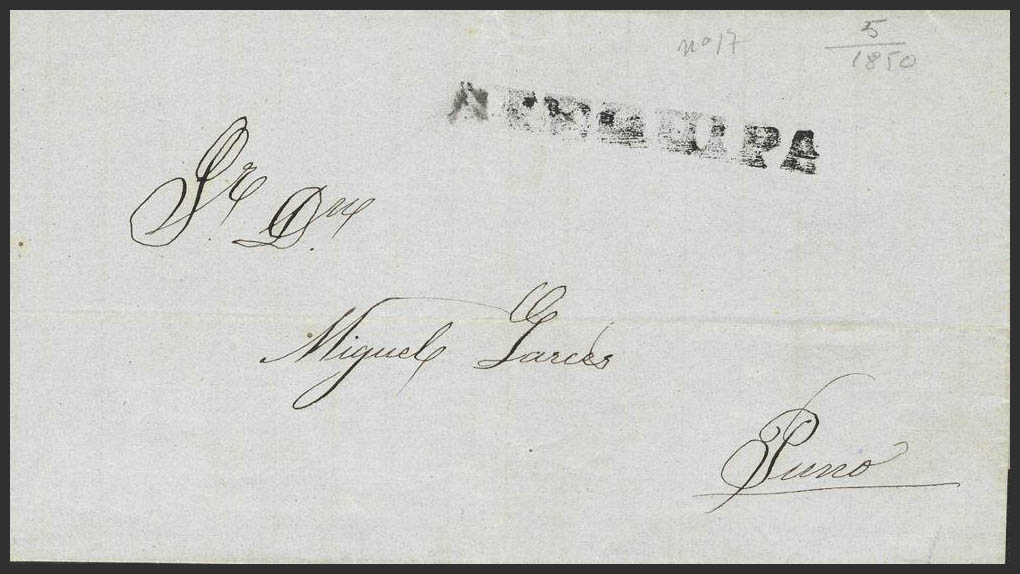 nº 17
5
1850
AREQUIPA
Sr. Dn.
Miguel Garcés
Puno